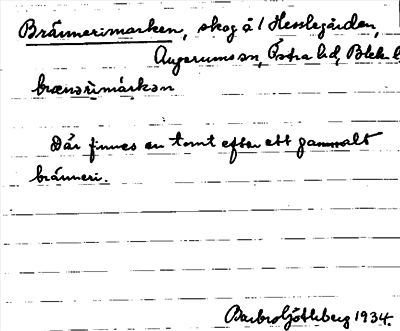 Brännerimarken, skog å 1 Hesslegården,
Augerums sn, Östra hd, Blek. l
brænərimárkən
Där finnes en tomt efter ett gammalt
bränneri.
Barbro Götlberg 1934.